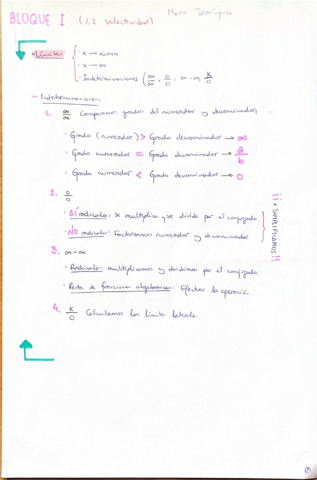 BLOQUE I (1,2 selectividad)
Límites
· x → número
· x → ∞
· Indeterminaciones (∞/∞, 0/0, ∞-∞, k/0
- Indeterminaciones
1. ∞/∞ Comparamos grados del numerador y denominador
· Grado (numerador) > Grado denominador → ∞
· Grado numerador = Grado denominador → a/b
· Grado numerador < Grado denominador → 0
2. 0/0
· SÍ radicales: se multiplica y se divide por el conjugado
· NO radicales: Factorizamos numerador y denominador
¡¡ + SIMPLIFICAMOS !!
3. ∞-∞
· Radicales: multiplicamos y dividimos por el conjugado.
· Resta de fracciones algebraicas: Efectuar la operación.
4. k/0 Calculamos los límites laterales.